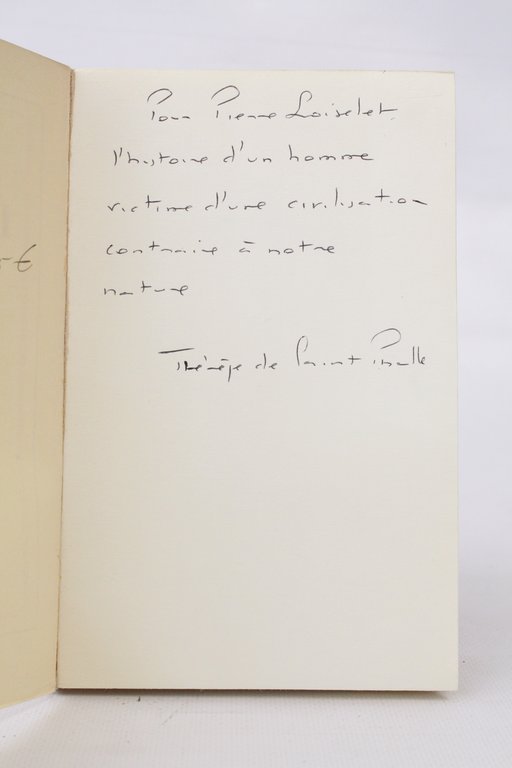 Pour Pierre Loiselet,
l'histoire d'un homme
victime d'une civilisation
contraire à notre
nature
Thérèse de Saint Phalle
5 €